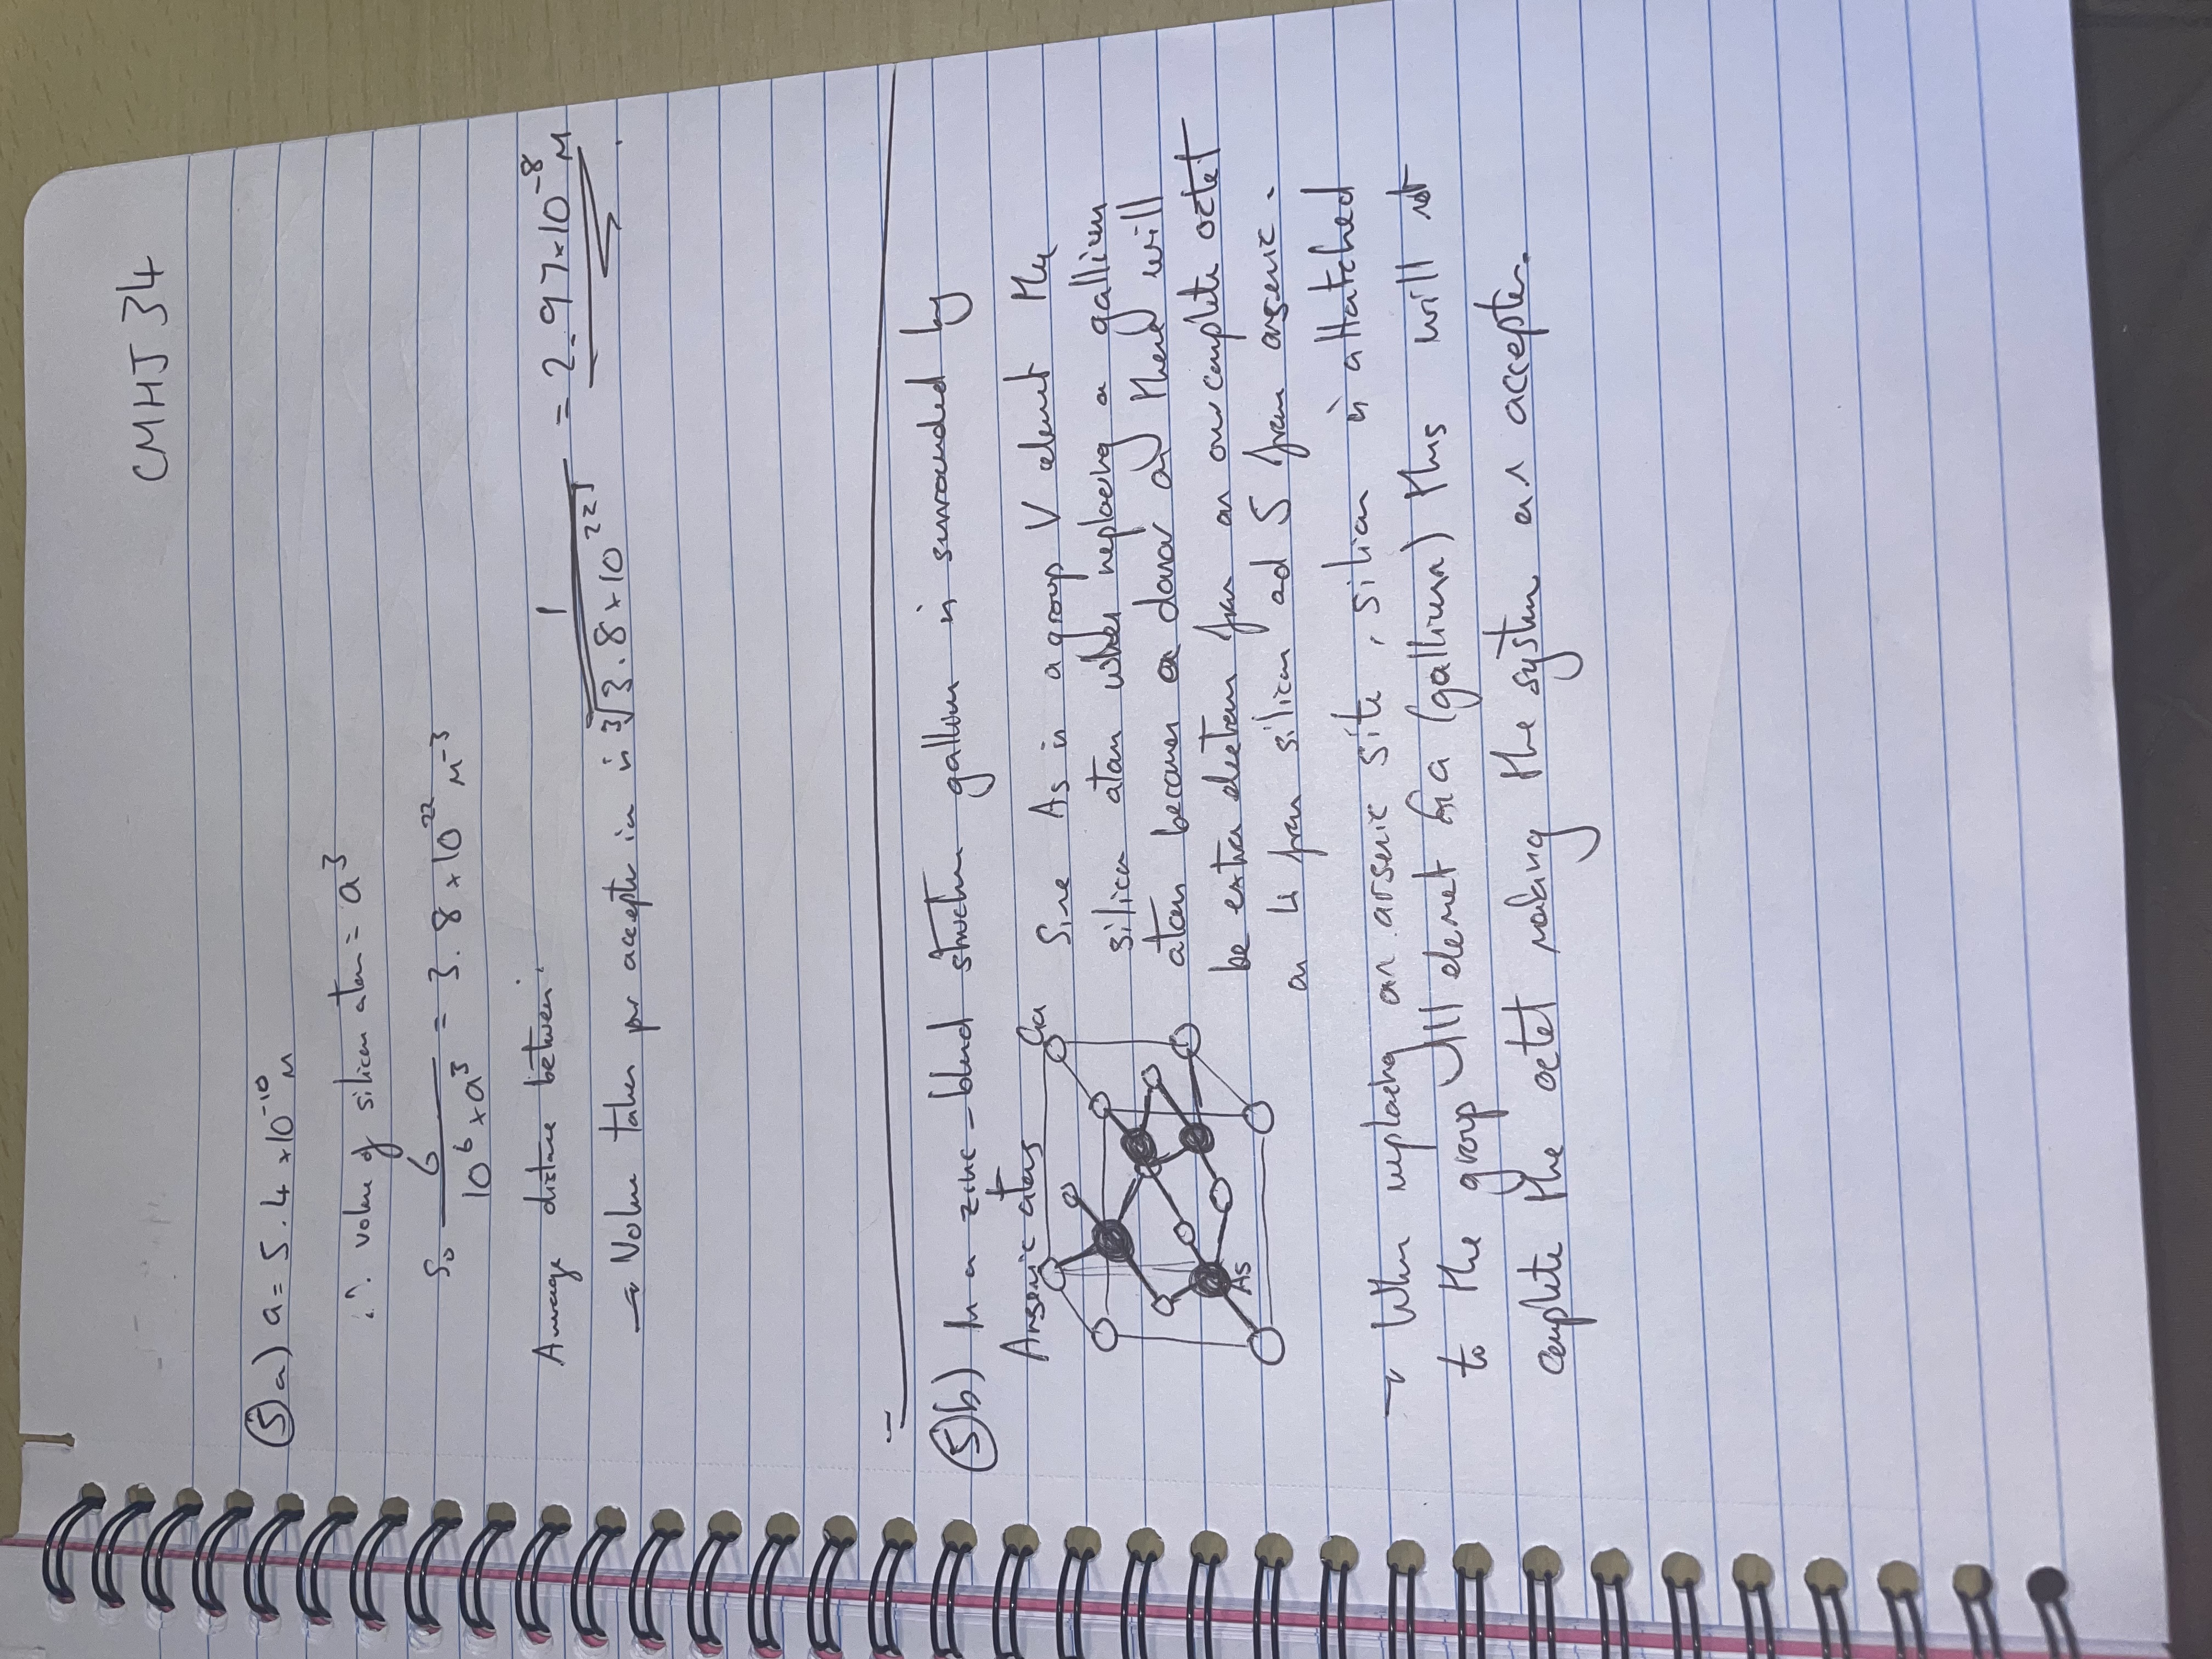 CMHJ 34
5 a) a = 5.4 × 10⁻¹⁰ M
∴ volume of silicon atom = a³
So 6 / (10⁶ × a³) = 3.8 × 10²² M⁻³
Average distance between:
→ Volume taken per accepter ion is 1 / ∛(3.8 × 10²²) = 2.97 × 10⁻⁸ M
5 b) In a zinc-blend structure gallium is surrounded by
Arsenic atoms
Ga
As
Since As is a group V element the
silicon atom when replacing a gallium
atom becomes a donor as there will
be extra electrons from an over complete octet
as 4 from silicon and 5 from arsenic.
→ When replacing an arsenic site, silicon is attatched
to the group III element Ga (gallium) this will not
complete the octet making the system an accepter.